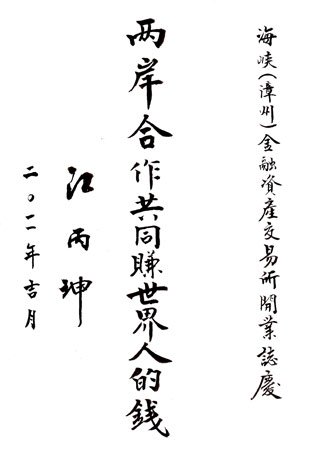 海峡(漳州)金融資產交易所開業誌慶
两岸合作共同賺世界人的錢
江丙坤
二〇一一年吉月